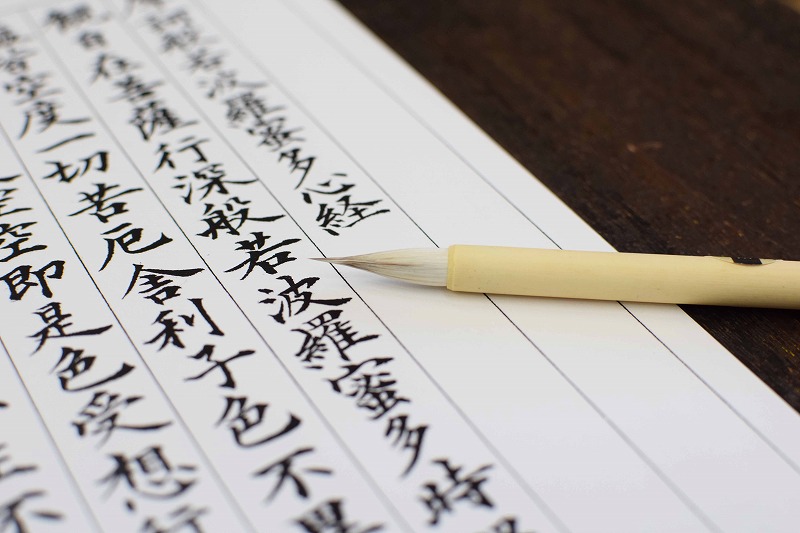 訶般若波羅蜜多心経
観自在菩薩行深般若波羅蜜多時
皆空度一切苦厄舎利子色不異
空空即是色受想行
生不